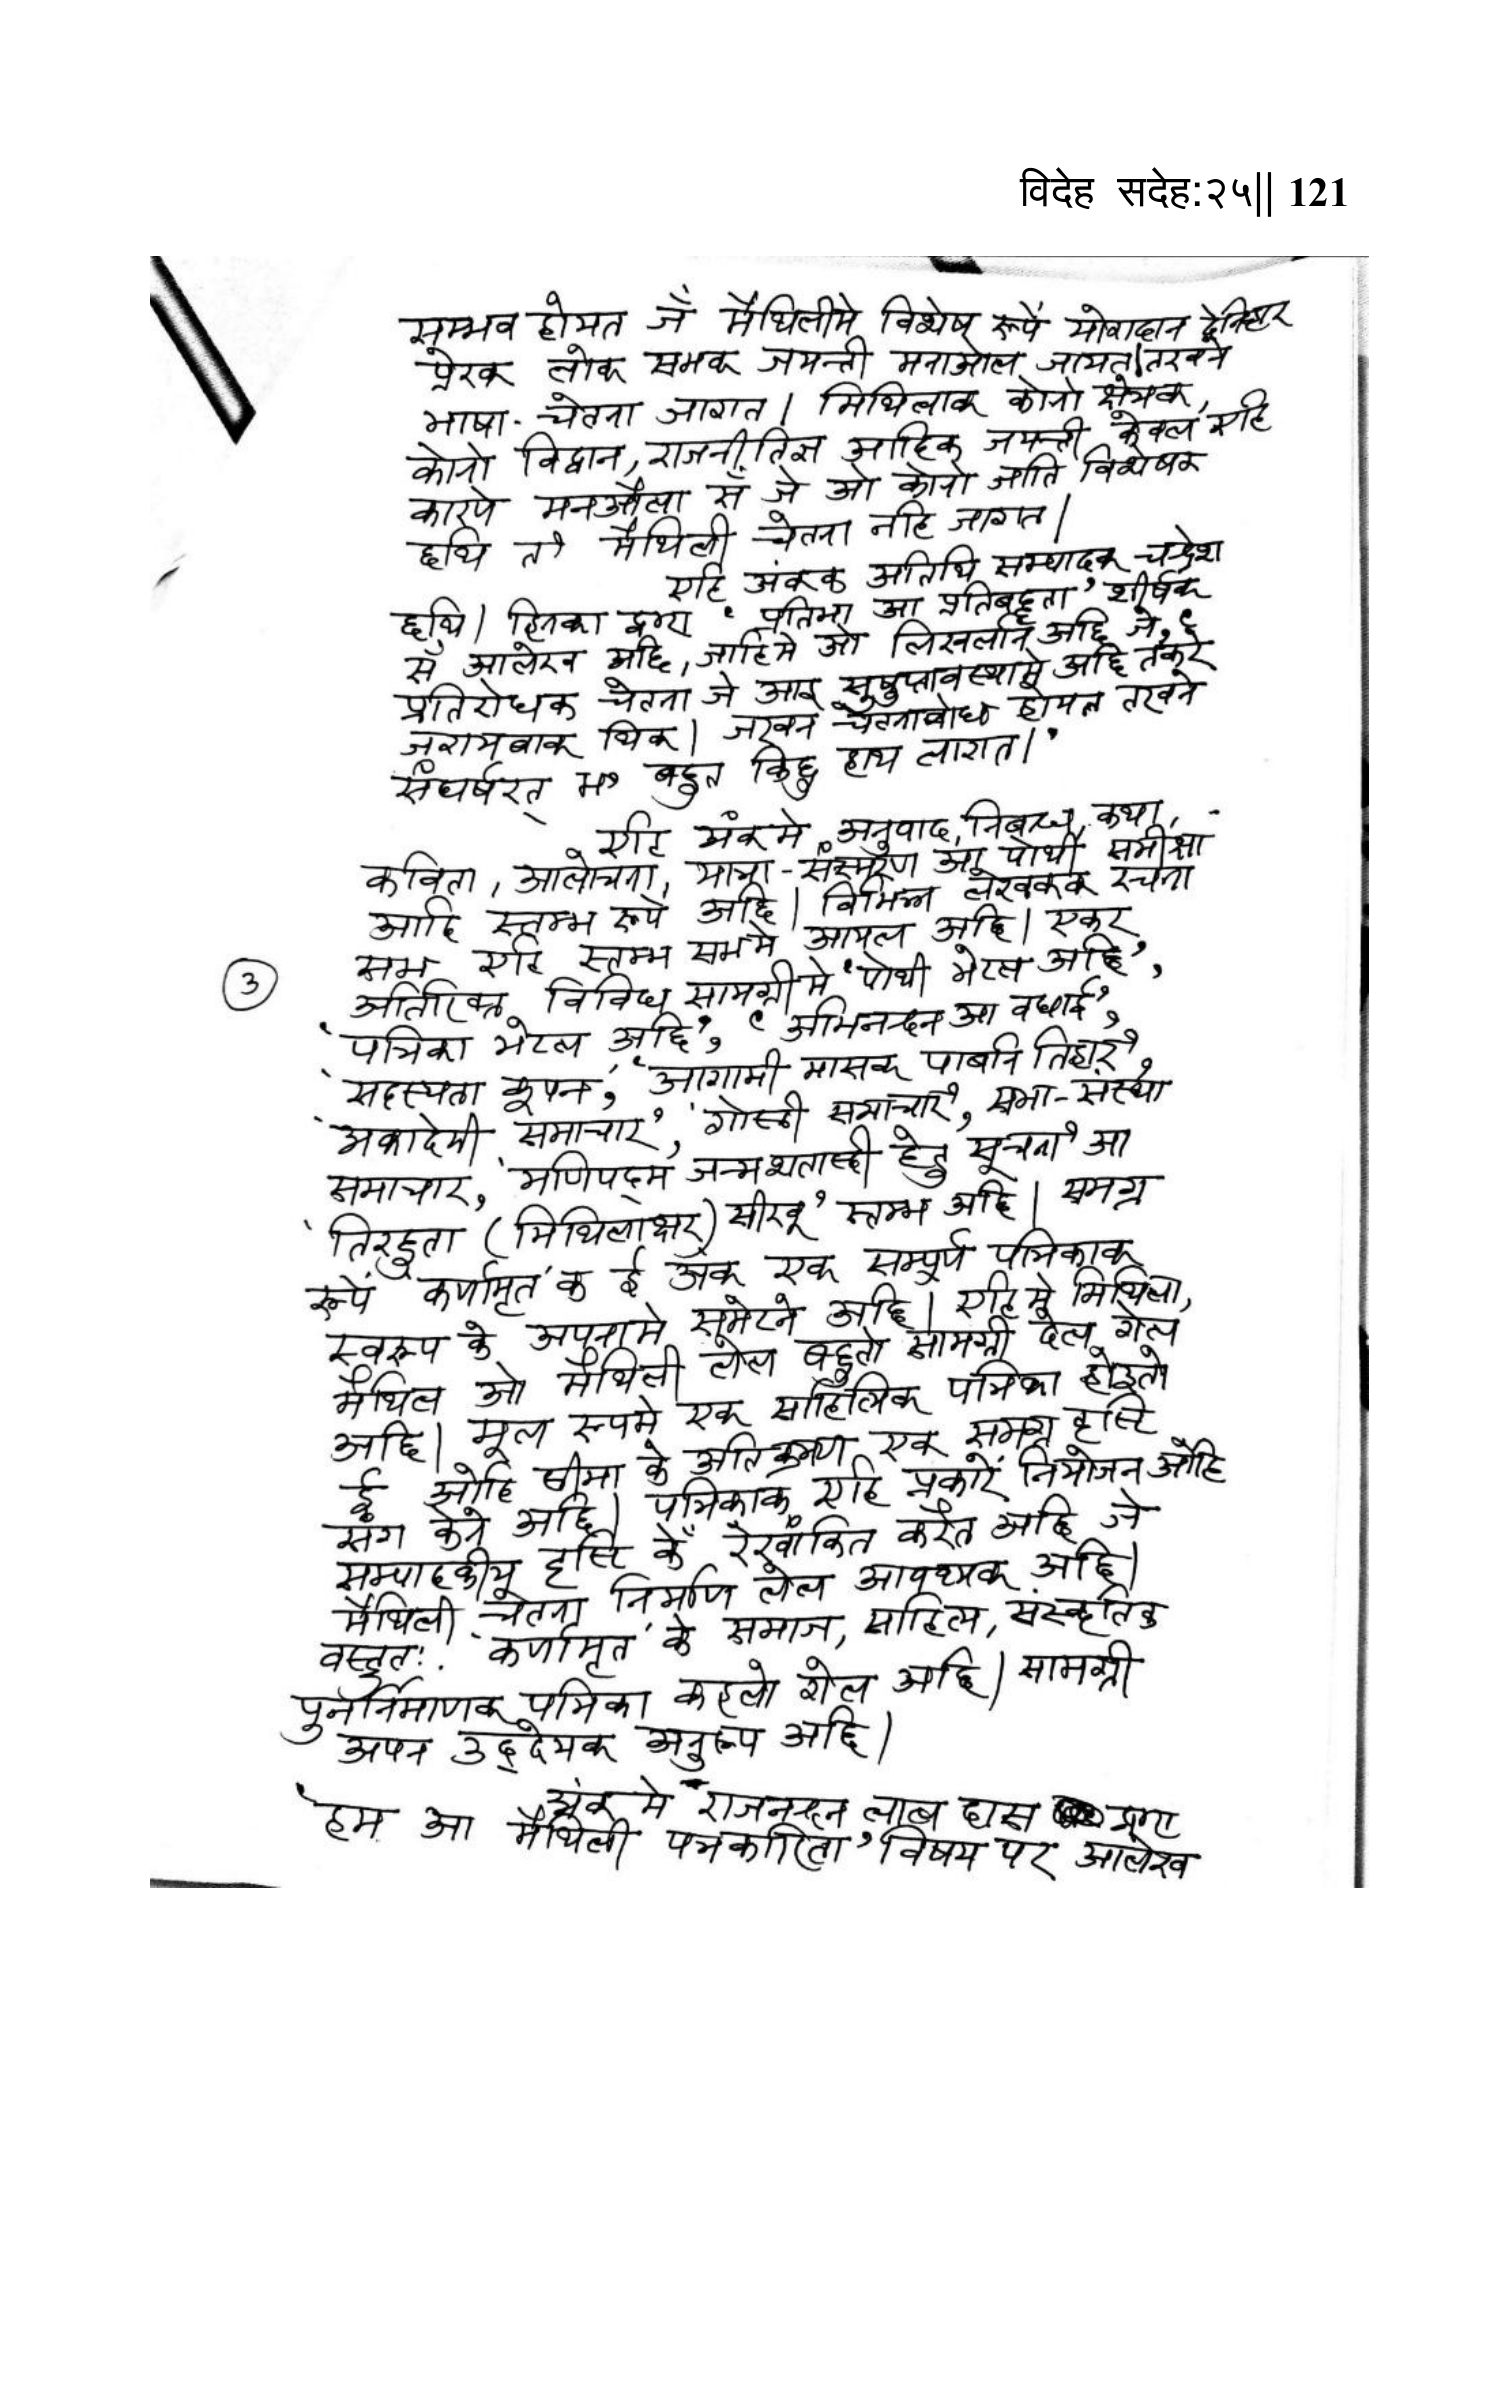 विदेह सदेह:२५|| 121
सम्भव होयत जँ मैथिलीमे विशेष रूपेँ योगदान देनिहार
प्रेरक लोक सभक जयन्ती मनाओल जायत। तखने
भाषा-चेतना जागत। मिथिलाक कोनो क्षेत्रक,
कोनो विद्वान, राजनीतिज्ञ आदिक जयन्ती केवल एहि
कारणे मनऔला सँ जे ओ कोनो जाति विशेषक
छथि तँ मैथिली चेतना नहि जागत।
एहि अंकक अतिथि सम्पादक चन्द्रेश
छथि। हिनका द्वारा 'प्रतिभा आ प्रतिबद्धता' शीर्षक
सँ आलेख अछि, जाहिमे ओ लिखलनि अछि जे, '
प्रतिरोधक चेतना जे आइ सुषुप्तावस्थामे अछि तकरे
जगयबाक थिक। जखन चेतनाबोध होयत तखने
संघर्षरत् भ' बहुत किछु हाथ लागत।'
एहि अंकमे अनुवाद, निबन्ध, कथा,
कविता, आलोचना, यात्रा-संस्मरण आ पोथी समीक्षा
आदि स्तम्भ रूपेँ अछि। विभिन्न लेखकक रचना
सभ एहि स्तम्भ सभमे आयल अछि। एकर
3
अतिरिक्त विविध सामग्रीमे 'पोथी भेटल अछि',
'पत्रिका भेटल अछि', 'अभिनन्दन आ बधाई',
'सदस्यता कूपन', 'आगामी मासक पाबनि तिहार',
'अकादेमी समाचार', 'गोष्ठी समाचार', सभा-संस्था
समाचार, 'मणिपद्म जन्मशताब्दी हेतु सूचना' आ
'तिरहुता (मिथिलाक्षर) सीखू' स्तम्भ अछि। समग्र
रूपेँ 'कर्णामृत'क ई अंक एक सम्पूर्ण पत्रिकाक
स्वरूप के अपनामे समेटने अछि। एहिमे मिथिला,
मैथिल ओ मैथिली लेल बहुतो सामग्री देल गेल
अछि। मूल रूपमे एक साहित्यिक पत्रिका होइतो
ई ओहि सीमा के अतिक्रमण एक समग्र दृष्टि
संग केने अछि। पत्रिकाक एहि प्रकारेँ नियोजन ओहि
सम्पादकीय दृष्टि केँ रेखांकित करैत अछि जे
मैथिली चेतना निर्माण लेल आवश्यक अछि।
वस्तुतः 'कर्णामृत' के समाज, साहित्य, संस्कृतिक
पुनर्निमाणक पत्रिका कहलो गेल अछि। सामग्री
अपन उद्देश्यक अनुरूप अछि।
अंक मे राजनन्दन लाल दास द्वारा
'हम आ मैथिली पत्रकारिता' विषय पर आलेख